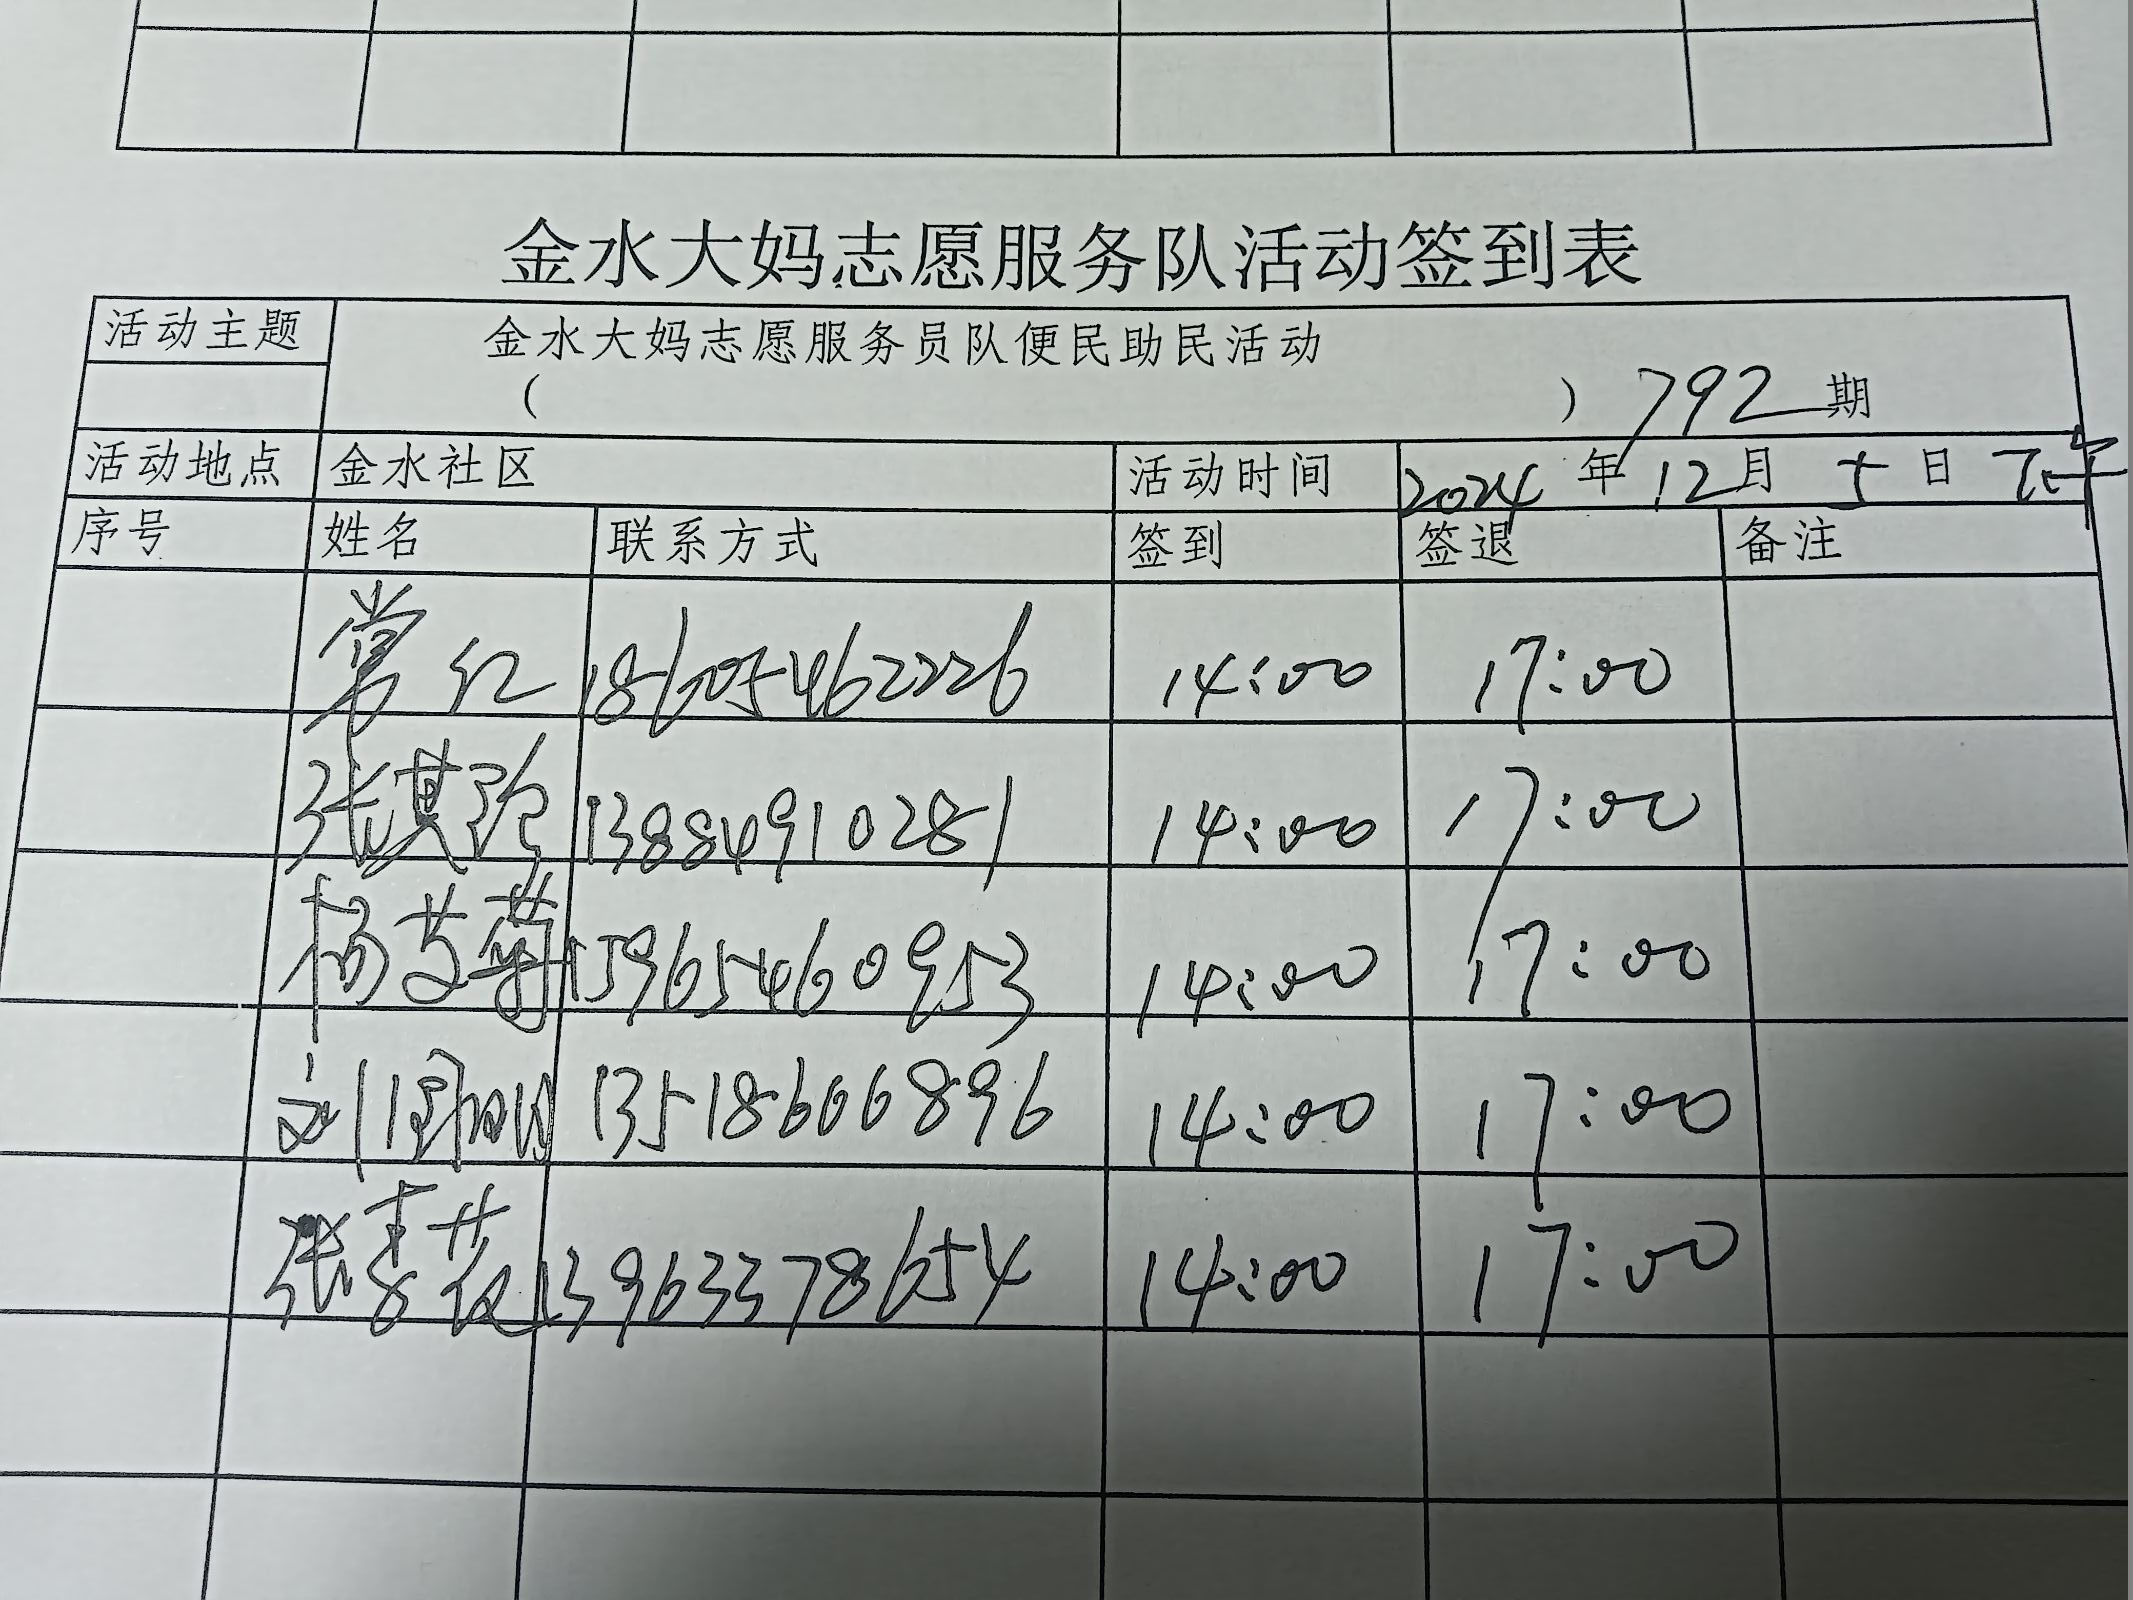 金水大妈志愿服务队活动签到表
活动主题 金水大妈志愿服务员队便民助民活动
( ) 792 期
活动地点 金水社区 活动时间 2024 年 12 月 5 日 下午
序号 姓名 联系方式 签到 签退 备注
常红 18605462226 14:00 17:00
张淇 13884910281 14:00 17:00
杨艾菊 15965460953 14:00 17:00
13518606896 14:00 17:00
张春花 13963378654 14:00 17:00